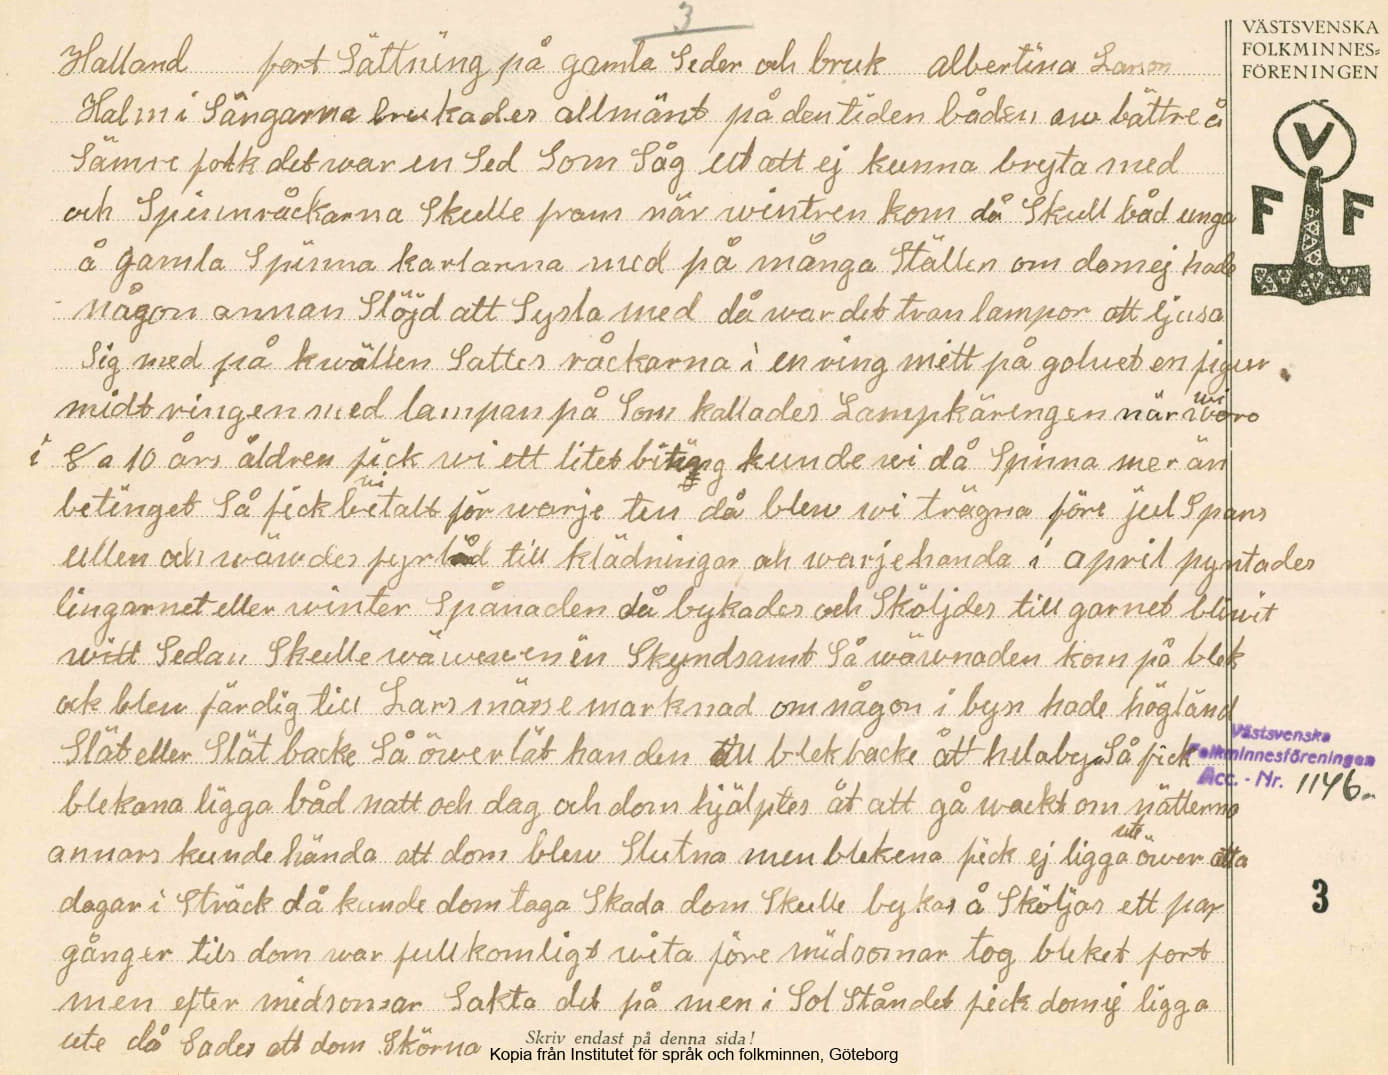 3
VÄSTSVENSKA
FOLKMINNES=
FÖRENINGEN
V
F F
Halland fort Sättning på gamla Seder och bruk albertina Larson
Halm i Sängarna brukades allmänt på den tiden båden aw bättre å
Sämre folk det war en Sed Som Såg ut att ej kunna bryta med
och Spinnråckarna Skulle fram när wintren kom då Skull båd unga
å gamla Spinna karlarna med på många Ställen om dom ej hade
någon annan Slöjd att Sysla med då war det tran lampor att ljusa
Sig med på kwällen Sattes råckarna i en ring mitt på golvet en figur
midt ringen med lampan på Som kallades Lampkäringen när wi woro
i 8 a 10 års åldren fick wi ett litet biting kunde wi då Spinna mer än
betinget Så fick wi betalt för warje ten då blew wi trägna före jul Spans
ullen och wäwdes fyrlåd till klädningar och warjehanda i april pyntades
lingarnet eller winter Spånaden då bykades och Sköljdes till garnet bliwit
witt Sedan Skulle wäwewen in Skyndsamt Så wäwnaden kom på blek
ock blew färdig till Larsmässe marknad om någon i byn hade högländ
Slät eller Slät backe Så öwerlät han den till blekbacke åt hela byn Så fick
blekana ligga båd natt och dag och dom hjälptes åt att gå wackt om nätterna
annars kunde hända att dom blew Slutna men blekena fick ej ligga ute öwer åtta
dagar i Sträck då kunde dom taga Skada dom Skulle bykas å Sköljas ett par
gånger tils dom war fullkomligt wita före midsomar tog bleket fort
men efter midsomar Sakta det på men i Sol Ståndet fick dom ej ligga
ute då Sades att dom Skörna
Västsvenska
Folkminnesföreningen
Acc. - Nr. 1146.
3
Skriv endast på denna sida!
Kopia från Institutet för språk och folkminnen, Göteborg